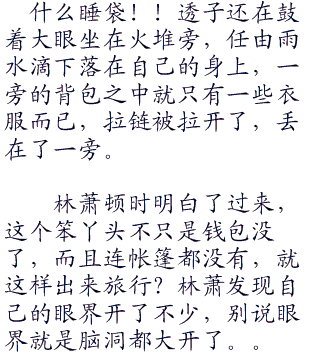 什么睡袋！！透子还在鼓
着大眼坐在火堆旁，任由雨
水滴下落在自己的身上，一
旁的背包之中就只有一些衣
服而已，拉链被拉开了，丢
在了一旁。
林萧顿时明白了过来，
这个笨丫头不只是钱包没
了，而且连帐篷都没有，就
这样出来旅行？林萧发现自
己的眼界开了不少，别说眼
界就是脑洞都大开了。。